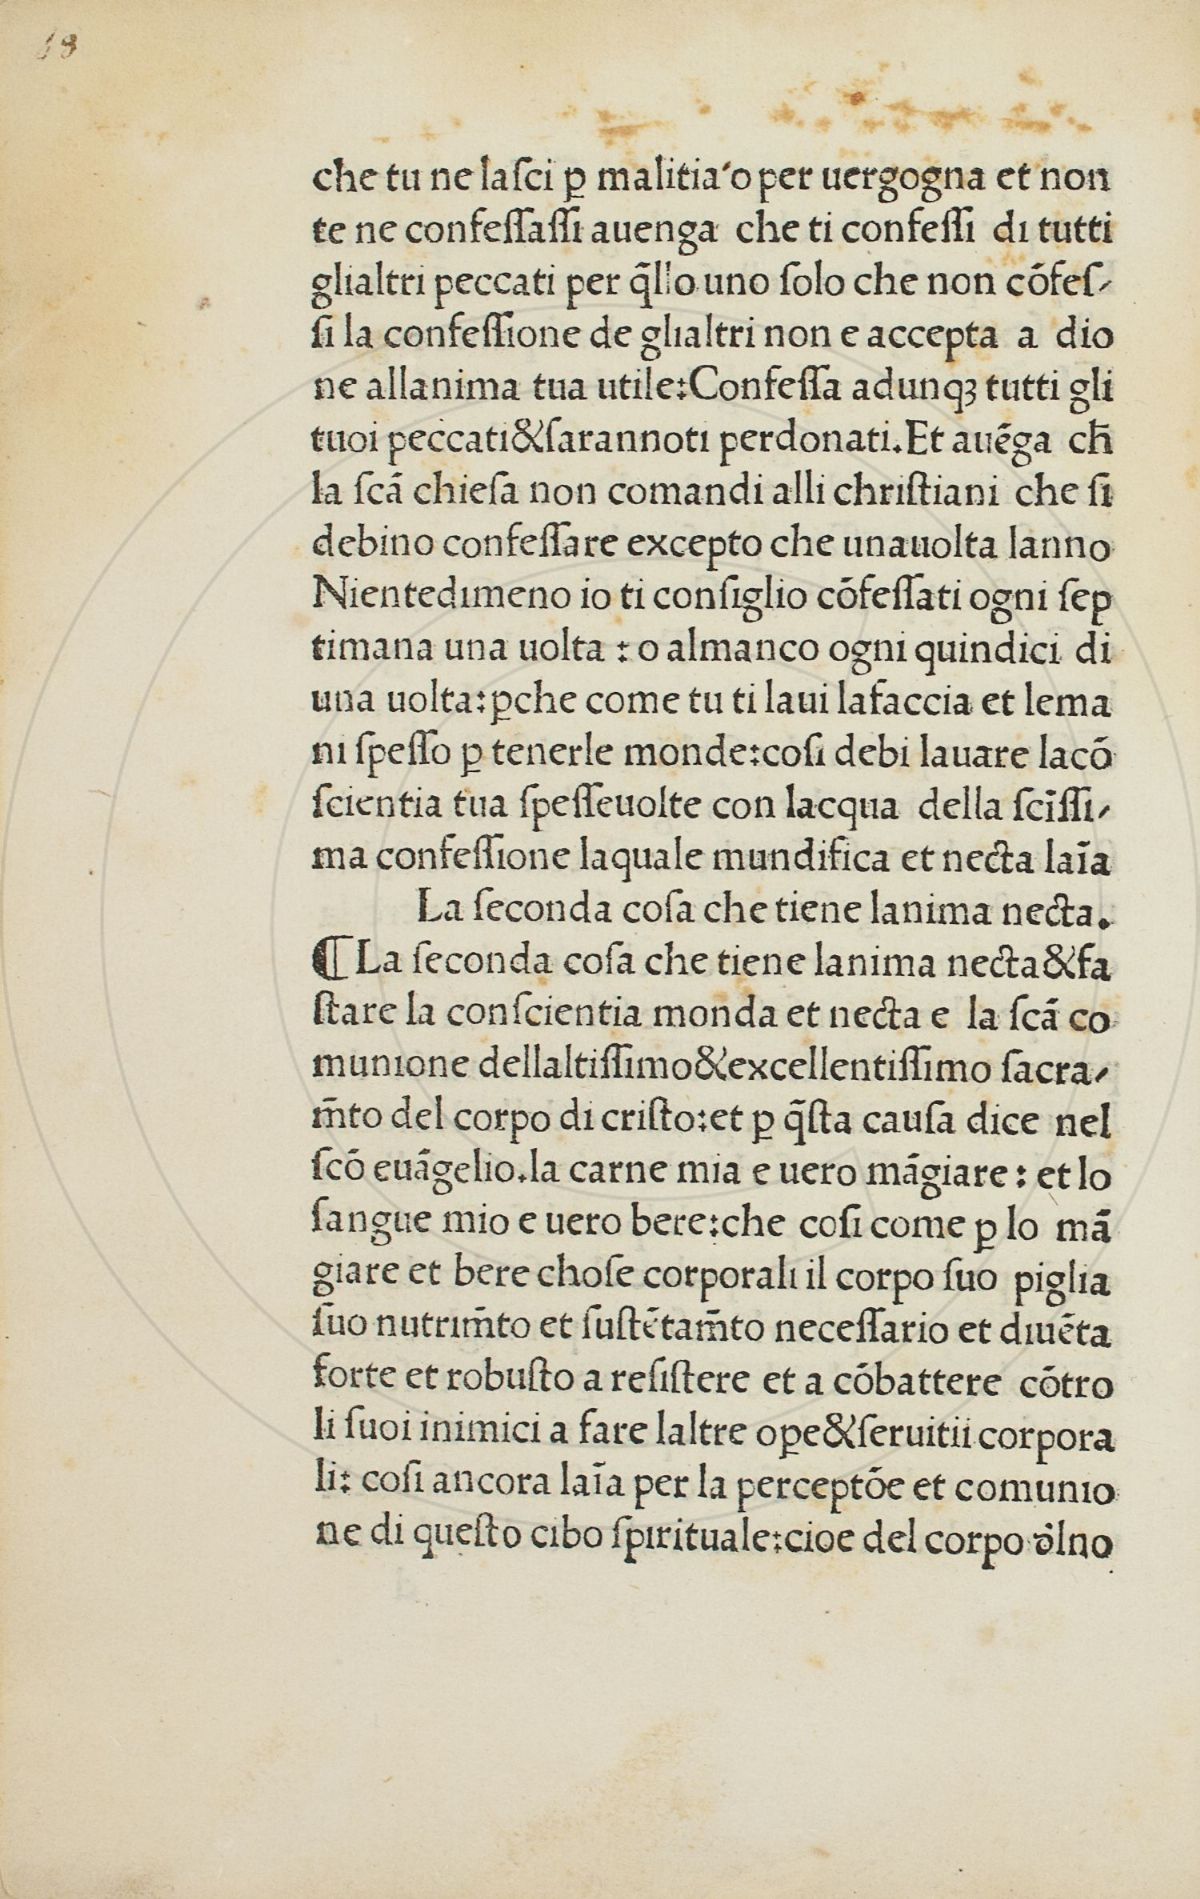 18
che tu ne laſci ꝑ malitia'o per uergogna et non
te ne confeſſaſſi auenga che ti confeſſi di tutti
glialtri peccati per q̃llo uno ſolo che non cõfeſ⸗
ſi la confeſſione de glialtri non e accepta a dio
ne allanima tua utile:Confeſſa adunqꝫ tutti gli
tuoi peccati&ſarannoti perdonati.Et auẽga cħ
la ſcã chieſa non comandi alli chriſtiani che ſi
debino confeſſare excepto che unauolta lanno
Nientedimeno io ti conſiglio cõfeſſati ogni ſep
timana una uolta : o almanco ogni quindici di
una uolta:ꝑche come tu ti laui lafaccia et lema
ni ſpeſſo ꝑ tenerle monde:coſi debi lauare lacõ
ſcientia tua ſpeſſeuolte con lacqua della ſcĩſſi⸗
ma confeſſione laquale mundifica et necta laĩa
La ſeconda coſa che tiene lanima necta.
¶ La ſeconda coſa che tiene lanima necta&fa
ſtare la conſcientia monda et necta e la ſcã co
munione dellaltiſſimo&excellentiſſimo ſacra⸗
m̃to del corpo di criſto:et ꝑ q̃ſta cauſa dice nel
ſcõ euãgelio.la carne mia e uero mãgiare : et lo
ſangue mio e uero bere:che coſi come ꝑ lo mã
giare et bere choſe corporali il corpo ſuo piglia
ſuo nutrim̃to et ſuſtẽtam̃to neceſſario et diuẽta
forte et robuſto a reſiſtere et a cõbattere cõtro
li ſuoi inimici a fare laltre oꝑe&ſeruitii corpora
li: coſi ancora laĩa per la perceptõe et comunio
ne di queſto cibo ſpirituale:cioe del corpo d̃lno